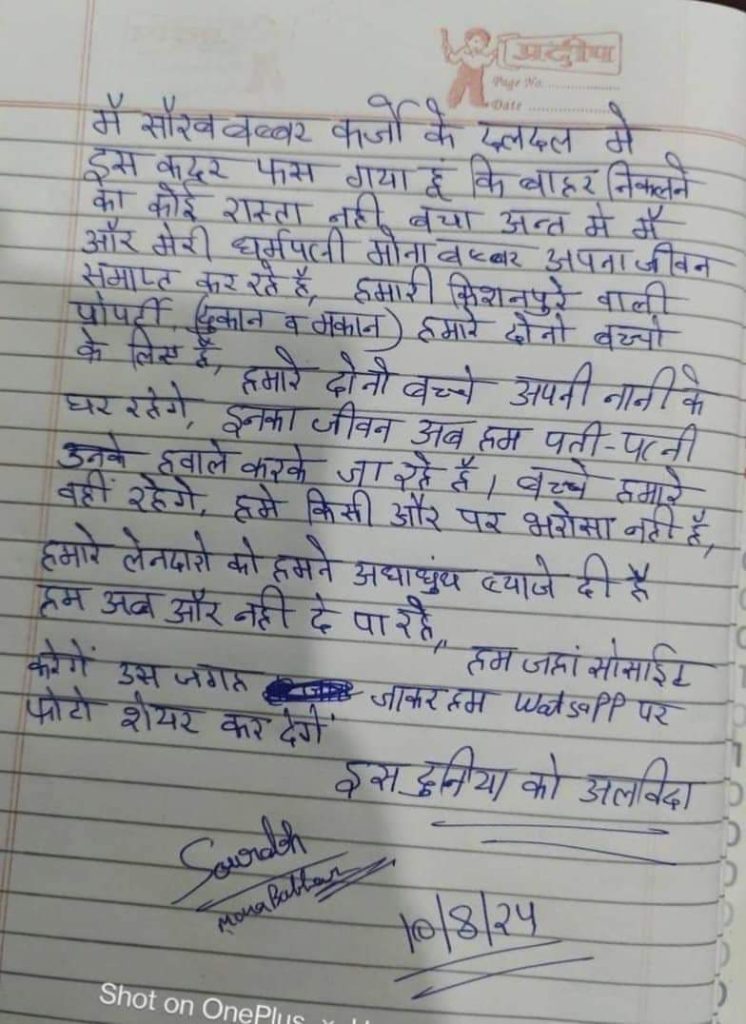 प्रदीप
Page No.
Date
मै सौरब बब्बर कर्जो के दलदल मे
इस कदर फस गया हूं कि बाहर निकलने
का कोई रास्ता नही बचा अन्त मे मैं
और मेरी धर्मपत्नी मोना बब्बर अपना जीवन
समाप्त कर रहे है, हमारी किशनपुरे वाली
प्रोपर्टी, (दुकान व मकान) हमारे दोनो बच्चो
के लिए है,
हमारे दोनो बच्चे अपनी नानी के
घर रहेगे, इनका जीवन अब हम पती-पत्नी
उनके हवाले करके जा रहे है। बच्चे हमारे
वहीं रहेगे, हमे किसी और पर भरोसा नही है,
हमारे लेनदारो को हमने अंधाधुंध ब्याजे दी है
हम अब और नही दे पा रहे,,
हम जहां सोसाईट
करेगें उस जगह जाकर हम Watsapp पर
फोटो शेयर कर देगें
इस दुनिया को अलविदा
Sourabh
Mona Babbar
10/8/24
Shot on OnePlus